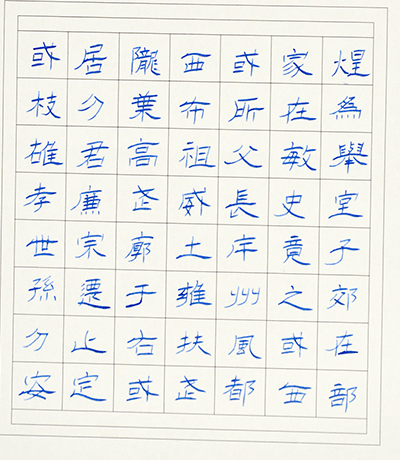 或居隴西或家煌
枝分葉布所在爲
雄君高祖父敏舉
孝廉武威長史室
世宗廓土斥竟子
孫遷于雍州之郊
分止右扶風或在
安定或武都西部